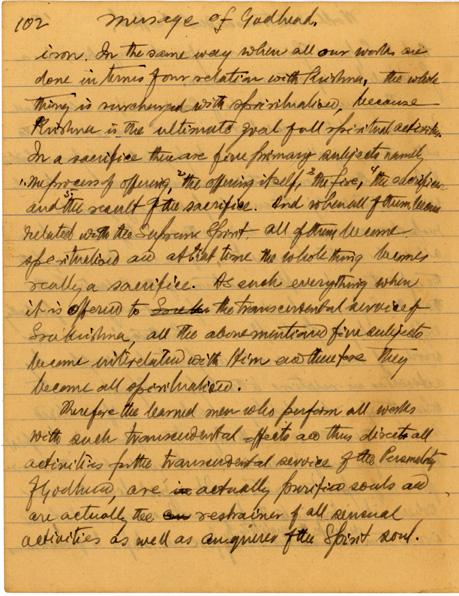 102 Message of Godhead.
iron. In the same way when all our works are
done in terms of our relation with Krishna, the whole
thing is surcharged with spiritualised, because
Krishna is the ultimate goal of all spiritual activities.
In a sacrifice there are five primary subjects namely
1. the process of offering, 2 the offering itself, 3 the fire, 4 the sacrificer
and 5 the result of the sacrifice. And when all of them become
related with the Supreme Spirit all of them become
spiritualised and at that time the whole thing becomes
really a sacrifice. As such everything when
it is offered to the transcendental service of
Sree Krishna, all the above mentioned five subjects
become interrelated with Him and therefore they
become all spiritualised.
Therefore the learned men who perform all works
with such transcendental effects and thus directs all
activities for the transcendental service of the Personality
of Godhead, are actually purified souls and
are actually the restrainer of all sensual
activities as well as conquerer of the Spirit soul.